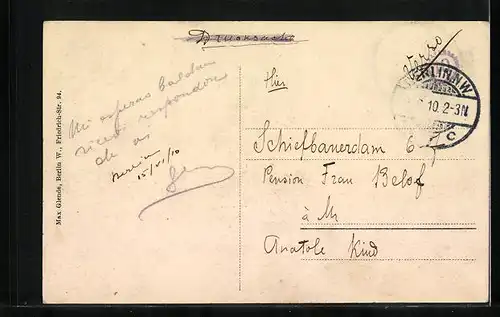 Drucksache
Verso
BERLIN NW
10. 2-3N
c
Hier
Mi esperas baldan
respondon
de
Berlin
15/VI/10
Schiefbauerdam 6-7
Pension Frau Belof
à Mr
Anatole Kind
Max Glende, Berlin W., Friedrich-Str. 94.